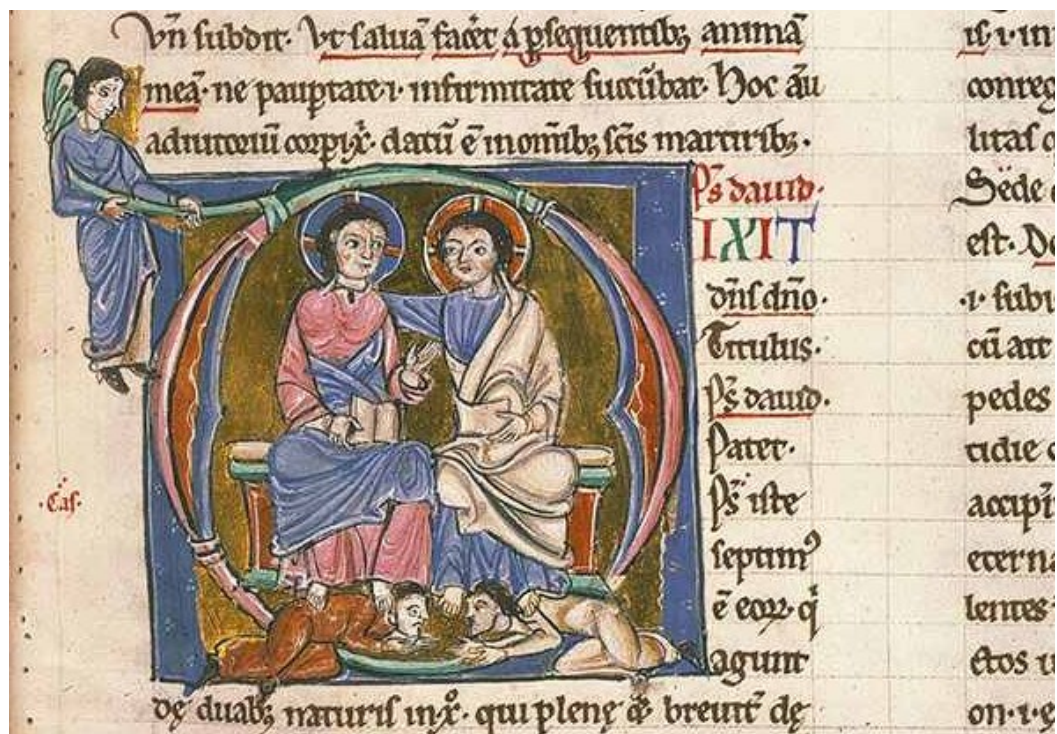 Vn̄ subdit. Vt saluā facēt a ꝑsequentibꝫ animā
meā. ne pauꝑtate .i. infirmitate succūbat. Hoc āu
adiutoriū corpi x̄. datū ē in om̄ibꝫ scīs martiribꝫ.
Ps̄ dauid.
IXIT
dn̄s dn̄o.
Titulus.
Ps̄ dauid.
Pater.
Ps̄ iste
septimꝰ
ē eoꝝ. qͥ
agunt
dę duabꝫ naturis in x̄o. qui plenę breuit̄ dę
.Cas.
is .i. in
congreg
litas c
Sede
est. Do
.i. subi
cū att
pedes
tidie c
accipi
eterna
lentes
ctos
on .i.